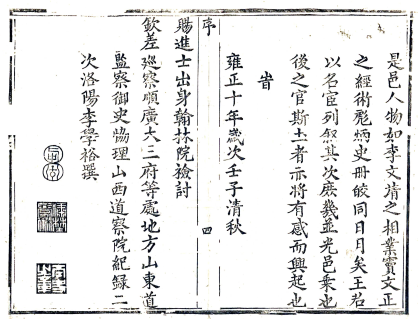 是邑人物如李文靖之相業竇文正
之經術彪炳史冊皎同日月矣王君
以名宦列叙其次庶幾並光邑乗也
後之官斯土者亦將有感而興起也
旹
雍正十年歲次壬子清秋
序
四
賜進士出身翰林院檢討
欽差巡察順廣大三府等處地方山東道
監察御史協理山西道察院紀録二
次洛陽李學裕撰